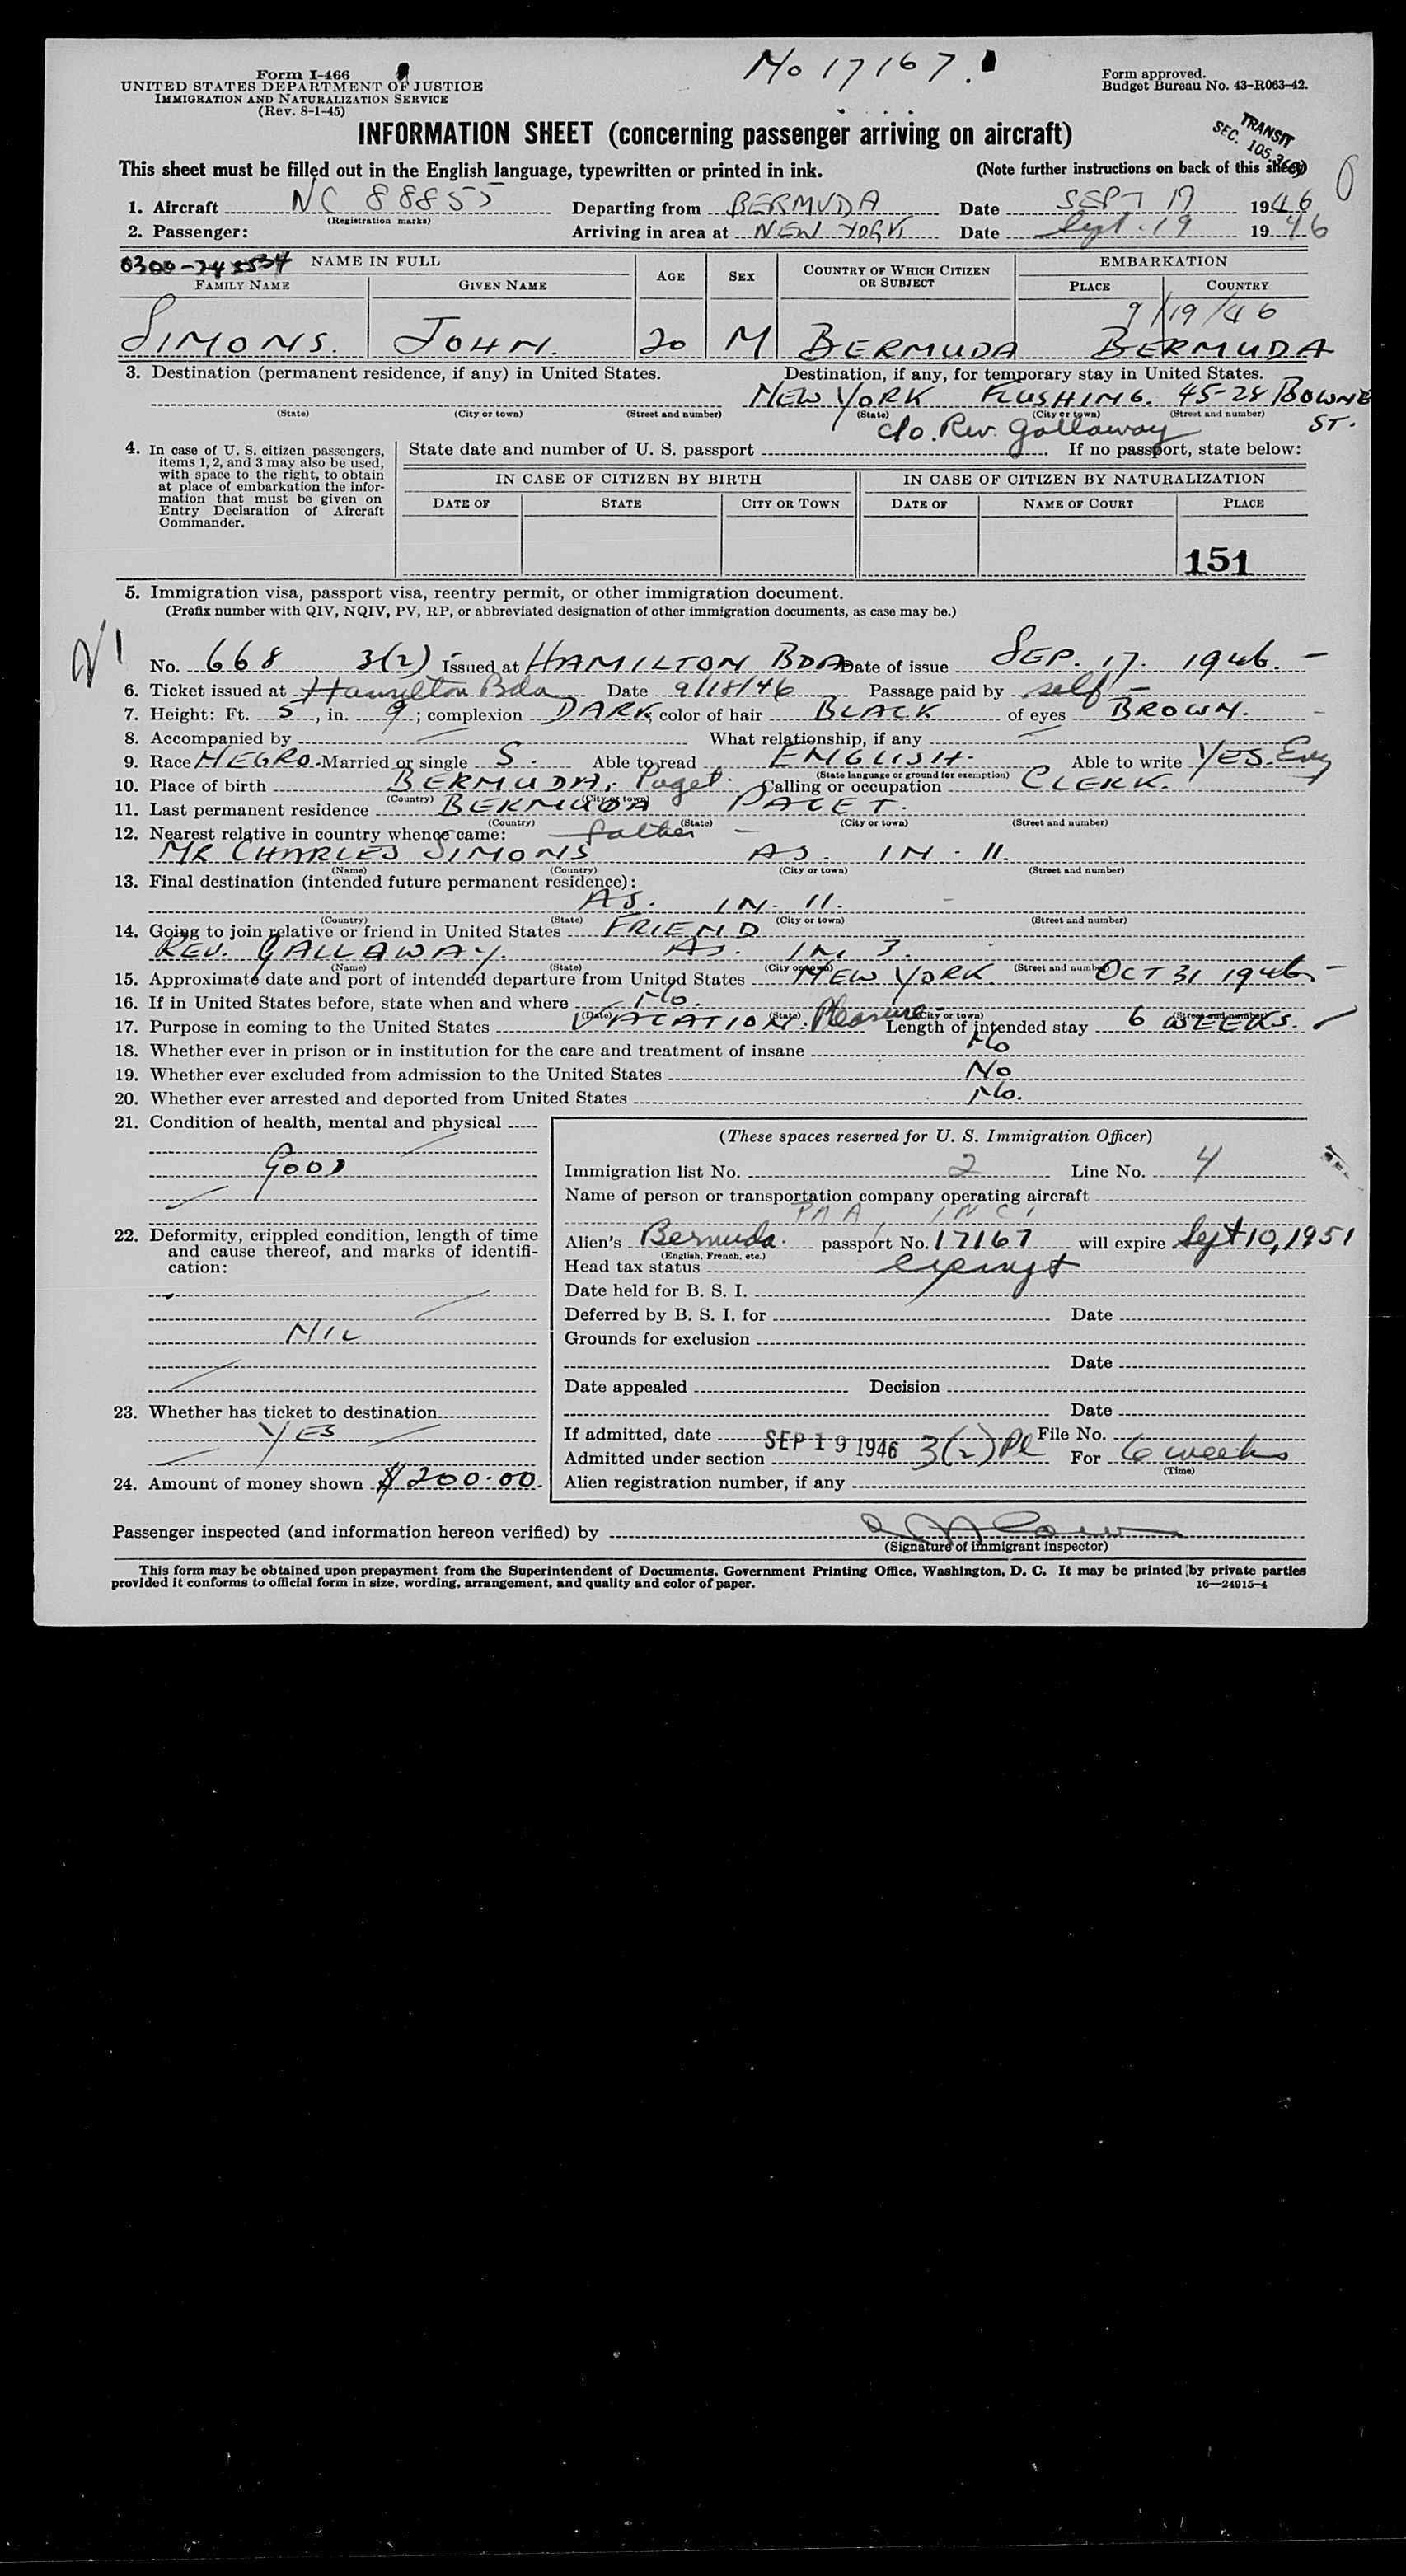 No 17167.
Form I-466
UNITED STATES DEPARTMENT OF JUSTICE
IMMIGRATION AND NATURALIZATION SERVICE
(Rev. 8-1-45)
Form approved.
Budget Bureau No. 43-R063-42.
INFORMATION SHEET (concerning passenger arriving on aircraft)
TRANSIT
SEC. 105.3
This sheet must be filled out in the English language, typewritten or printed in ink. (Note further instructions on back of this sheet)
1. Aircraft NC 88855 Departing from BERMUDA Date SEPT 19 1946
(Registration marks)
2. Passenger: Arriving in area at NEW YORK Date Sept. 19 1946
0300-245534 NAME IN FULL AGE SEX COUNTRY OF WHICH CITIZEN OR SUBJECT EMBARKATION
FAMILY NAME GIVEN NAME PLACE COUNTRY
9/19/46
SIMONS. JOHN. 20 M BERMUDA BERMUDA
3. Destination (permanent residence, if any) in United States. Destination, if any, for temporary stay in United States.
NEW YORK FLUSHING. 45-28 BOWNE ST.
(State) (City or town) (Street and number) (State) (City or town) (Street and number)
c/o. Rev. Gallaway
4. In case of U. S. citizen passengers, items 1, 2, and 3 may also be used, with space to the right, to obtain at place of embarkation the information that must be given on Entry Declaration of Aircraft Commander.
State date and number of U. S. passport If no passport, state below:
IN CASE OF CITIZEN BY BIRTH IN CASE OF CITIZEN BY NATURALIZATION
DATE OF STATE CITY OR TOWN DATE OF NAME OF COURT PLACE
151
5. Immigration visa, passport visa, reentry permit, or other immigration document.
(Prefix number with QIV, NQIV, PV, RP, or abbreviated designation of other immigration documents, as case may be.)
No. 668 3(2) Issued at HAMILTON BDA Date of issue SEP. 17. 1946. -
6. Ticket issued at Hamilton Bda Date 9/18/46 Passage paid by self -
7. Height: Ft. 5, in. 9; complexion DARK; color of hair BLACK of eyes BROWN. -
8. Accompanied by What relationship, if any
9. Race NEGRO. Married or single S. Able to read ENGLISH. Able to write YES. Eng
(State language or ground for exemption)
10. Place of birth BERMUDA, Paget. Calling or occupation CLERK.
(Country) (City or town)
11. Last permanent residence BERMUDA PAGET.
(Country) (State) (City or town) (Street and number)
12. Nearest relative in country whence came: father -
MR CHARLES SIMONS AS. IN. 11.
(Name) (Country) (City or town) (Street and number)
13. Final destination (intended future permanent residence):
AS. IN. 11. -
(Country) (State) (City or town) (Street and number)
14. Going to join relative or friend in United States FRIEND
REV. GALLAWAY. AS. IN. 3.
(Name) (State) (City or town) (Street and number)
15. Approximate date and port of intended departure from United States NEW YORK. OCT 31 1946 -
16. If in United States before, state when and where No.
(Date) (State) (City or town) (Street and number)
17. Purpose in coming to the United States VACATION. Pleasure Length of intended stay 6 WEEKS.
18. Whether ever in prison or in institution for the care and treatment of insane No
19. Whether ever excluded from admission to the United States No
20. Whether ever arrested and deported from United States No.
21. Condition of health, mental and physical
GOOD
22. Deformity, crippled condition, length of time and cause thereof, and marks of identification:
NIL
23. Whether has ticket to destination
YES
24. Amount of money shown $200.00.
(These spaces reserved for U. S. Immigration Officer)
Immigration list No. 2 Line No. 4
Name of person or transportation company operating aircraft
PAA, INC.
Alien's Bermuda. passport No. 17167 will expire Sept 10, 1951
(English, French, etc.)
Head tax status exempt
Date held for B. S. I.
Deferred by B. S. I. for Date
Grounds for exclusion
Date
Date appealed Decision
Date
If admitted, date SEP 19 1946 File No.
Admitted under section 3(2) Pl For 6 weeks
(Time)
Alien registration number, if any
Passenger inspected (and information hereon verified) by
(Signature of immigrant inspector)
This form may be obtained upon prepayment from the Superintendent of Documents, Government Printing Office, Washington, D. C. It may be printed by private parties
provided it conforms to official form in size, wording, arrangement, and quality and color of paper. 16—24915-4